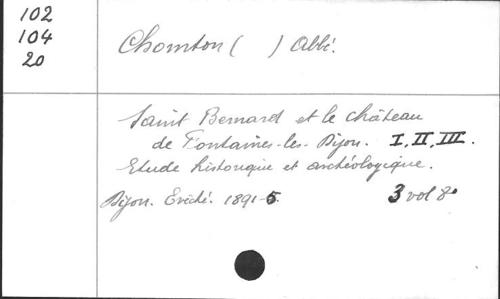 102
104
20
Chomton ( ) Abbé.
Saint Bernard et le château
de Fontaines-les-Dijon. I, II, III.
Etude historique et archéologique.
Dijon. Evêché. 1891-5. 3 vol 8°